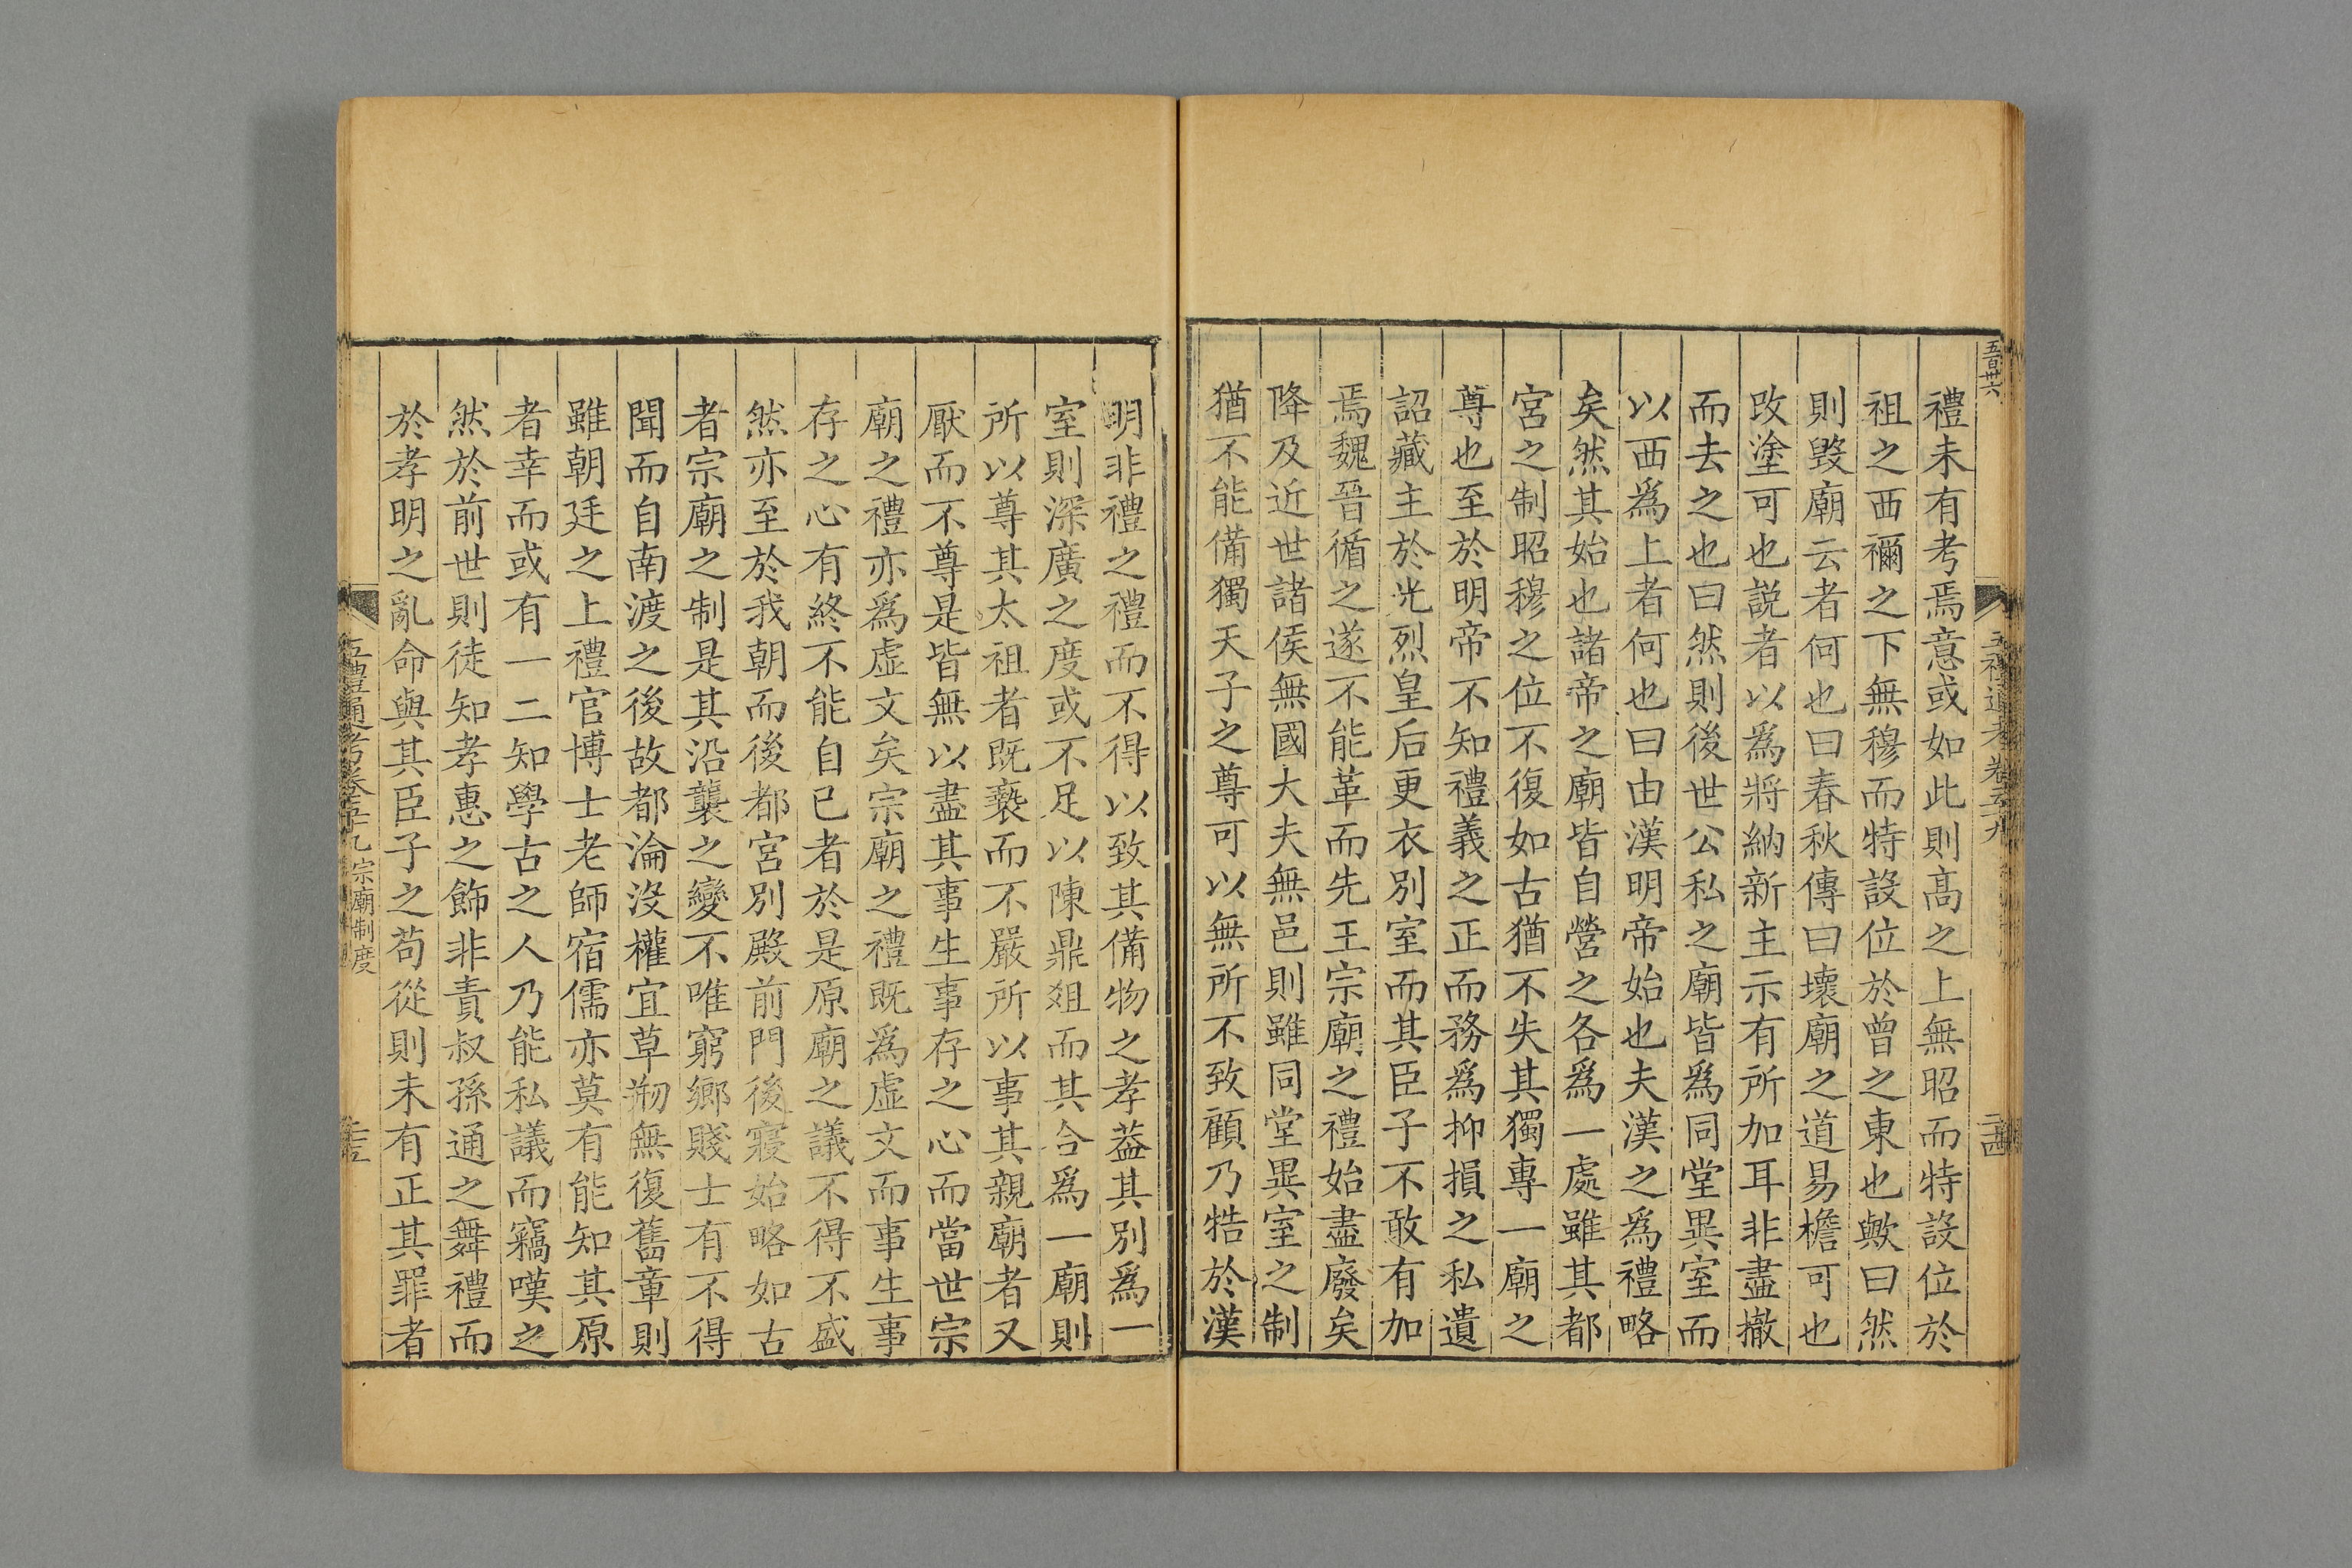 五百卅六
禮未有考焉意或如此則髙之上無昭而特設位於
祖之西禰之下無穆而特設位於曾之東也歟曰然
則毀廟云者何也曰春秋傳曰壞廟之道易檐可也
改塗可也説者以爲將納新主示有所加耳非盡撤
而去之也曰然則後世公私之廟皆爲同堂異室而
以西爲上者何也曰由漢明帝始也夫漢之爲禮略
矣然其始也諸帝之廟皆自營之各爲一處雖其都
宮之制昭穆之位不復如古猶不失其獨專一廟之
尊也至於明帝不知禮義之正而務爲抑損之私遺
詔藏主於光烈皇后更衣別室而其臣子不敢有加
焉魏晉循之遂不能革而先王宗廟之禮始盡廢矣
降及近世諸侯無國大夫無邑則雖同堂異室之制
猶不能備獨天子之尊可以無所不致顧乃牿於漢
明非禮之禮而不得以致其備物之孝葢其別爲一
室則深廣之度或不足以陳鼎爼而其合爲一廟則
所以尊其太祖者既褻而不嚴所以事其親廟者又
厭而不尊是皆無以盡其事生事存之心而當世宗
廟之禮亦爲虚文矣宗廟之禮既爲虚文而事生事
存之心有終不能自已者於是原廟之議不得不盛
然亦至於我朝而後都宮別殿前門後寢始略如古
者宗廟之制是其沿襲之變不唯窮鄉賤士有不得
聞而自南渡之後故都淪沒權宜草剏無復舊章則
雖朝廷之上禮官博士老師宿儒亦莫有能知其原
者幸而或有一二知學古之人乃能私議而竊嘆之
然於前世則徒知孝惠之飾非責叔孫通之舞禮而
於孝明之亂命與其臣子之苟從則未有正其罪者
五禮通考卷五十九 宗廟制度